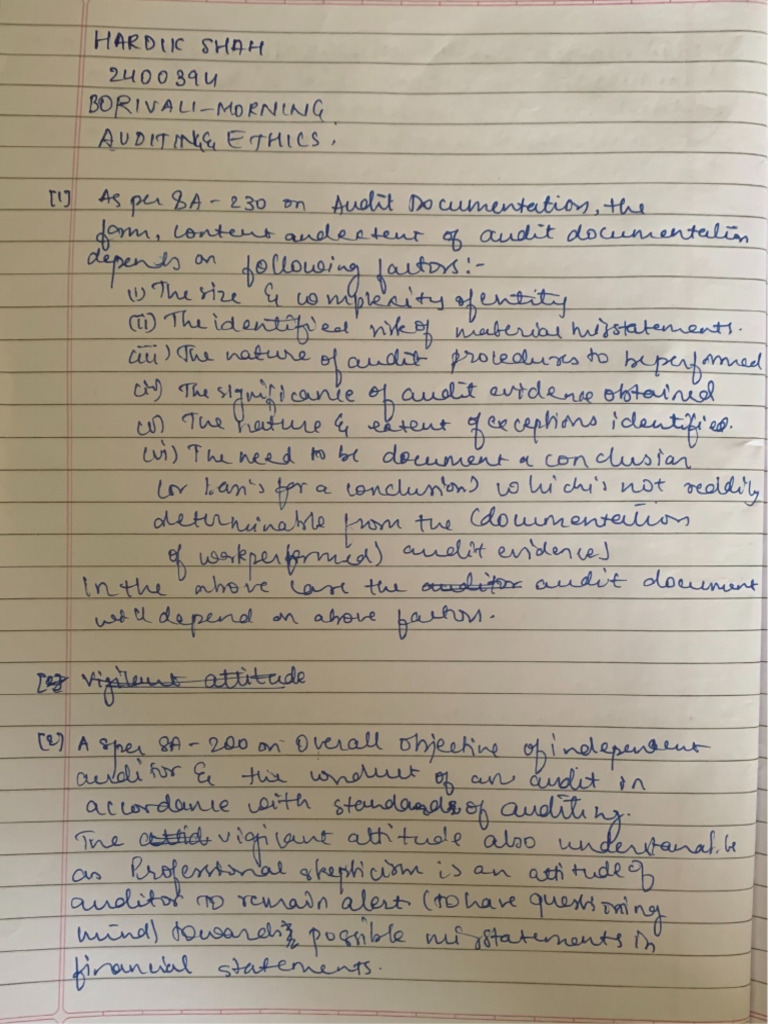 HARDIK SHAH
2400394
BORIVALI-MORNING
AUDITING & ETHICS.
[1] As per SA-230 on Audit Documentation, the
form, content and extent of audit documentation
depends on following factors:-
(i) The size & complexity of entity
(ii) The identified risk of material misstatements.
(iii) The nature of audit procedures to be performed
(iv) The significance of audit evidence obtained
(v) The nature & extent of exceptions identified.
(vi) The need to be document a conclusion
(or basis for a conclusion) which is not readily
determinable from the (documentation
of work performed) audit evidence)
In the above case the auditor audit document
will depend on above factors.
[2] Vigilent attitude
[2] As per SA-200 on Overall objective of independent
auditor & the conduct of an audit in
accordance with standards of auditing.
The attid vigilant attitude also understanable
as Professional skepticism is an attitude of
auditor to remain alert (to have questioning
mind) towards possible misstatements in
financial statements.